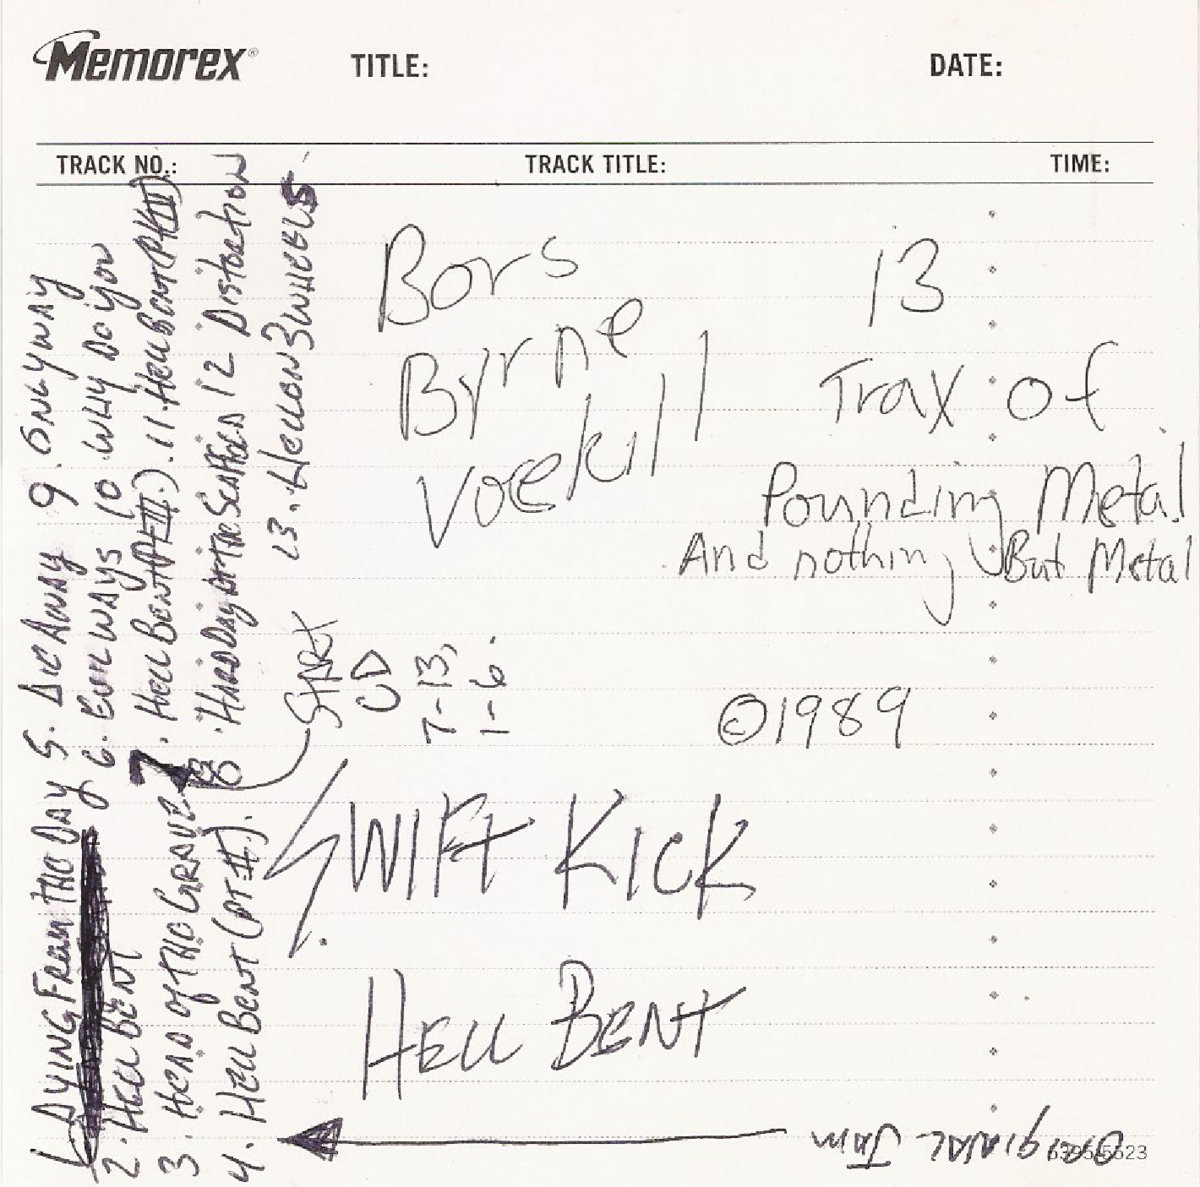 Memorex®
TITLE:
DATE:
TRACK NO.:
TRACK TITLE:
TIME:
Bors
Byrne
Voekill
13
Trax of
Pounding Metal
And nothing But Metal
©1989
SWIFT KICK
HELL BENT
START
CD
7-13,
1-6.
1. DYING FROM THE DAY 5. DIE AWAY 9. ONLY WAY
6. EVIL WAYS 10 WHY DO YOU
2. HELL BENT 7. HELL BENT (PT III.) 11. HELL BENT (PT III)
3. HEAD OF THE GRAVE 8. HARD DAY AT THE SCAFFOLD 12 DISTORTION
4. HELL BENT (PT II). 13. HELL ON 3 WHEELS
ORIGINAL JAM
5523